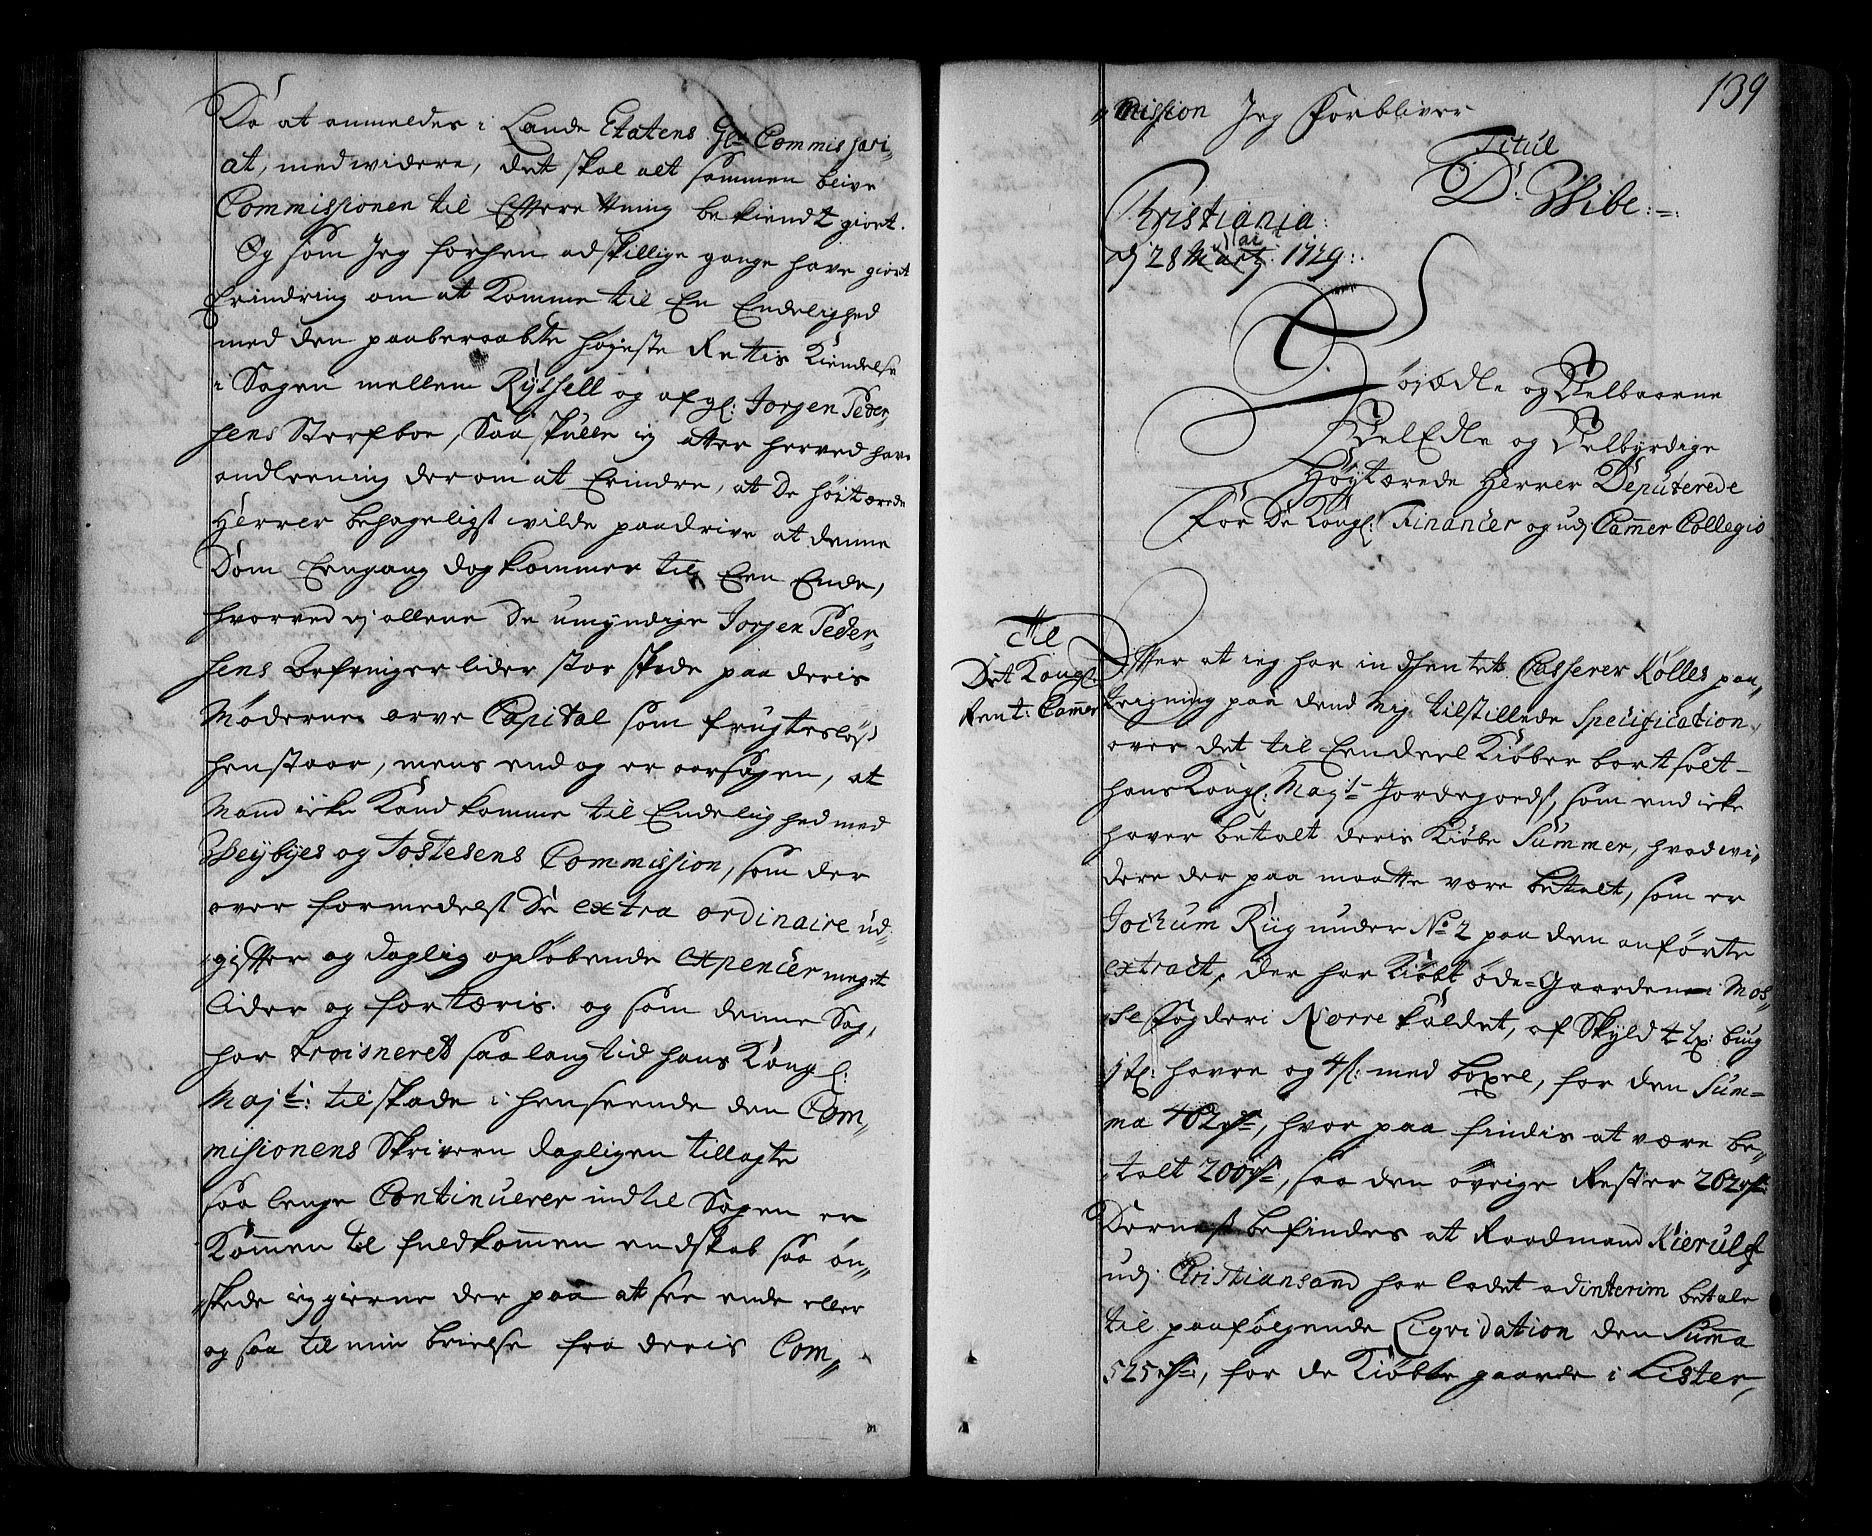 Da at anmeldes i Lande Etatens Gl: Commissari-
at, med widere, det skal alt sammen blive
Commissionen til Efterrettning bekiendt giort.
Og som Jeg forhen adskillige gange have giort
Erindring om at Komme til En Endelighed
med den paaberaabte højeste Rettis Kiendelse
i Sagen mellem Ryssell og afgl: Jorgen Peder-
sens Sterfboe, Saa skulle ieg atter herved have
andleening derom at Erindre, at De höitærede
Herrer behageligst wilde paadrive at denne
Dom Eengang dog kommer til Een Ende,
hvorved ej allene De umyndige Jorgen Peder-
sens Arfvinger lider stor skade paa deris
Mødernes arve Capital som frugtesløst
henstaar, mens end og er aarsagen, at
Mand icke Kand komme til Endelighed med
Weybyes og Tostesens Commission, som der
over formedelst De extra ordinaire ud-
gifter og daglig opløbende expencer meget
lider og fortæris. og som denne Sag,
har traisneret saa lang tid hans Kongl:
Majts: til skade i henseende den Com-
missionens Skriveren dagligen tillagte
saa lenge Continuerer indtil Sagen er
Kommen til fuldkommen endskab saa øn-
skede ieg gierne der paa at see ende eller
og saa til min brielse fra deris Com-
139
mission Jeg Forbliver
Titul
D: Wibe:=:
Christiania:
dj 28 Martj: 1729:
Høiædle og Velbaarne
VelEdle og Velbyrdige
Høÿtærede Herrer Deputerede
For De Kongl: Financer og udj Cammer Collegio
Til
Det Kongl:
Rent: Cammer
Efter at ieg har indhentet Casserer Kølles paa-
tegning paa dend mig tilstillede Specification
over det til Eendeel Kiøber bortsolt
hans Kongl: Mayts Jordegods, som end icke
haver betalt deris Kiøbe Summer, hvad wi-
dere der paa maatte være betalt, som er
Jochum Rüg under No 2 paa den anførte
extract, der har Kiøbt øde-Gaarden i Mos-
se fogderi Nørre kaldet, af Skyld 2 Lp: bug
1 tl: havre og 4 s: med boxel, for den Sum-
ma 402 rd:, hvor paa findis at være be-
talt 200 rd:, saa den øvrige Rester 202 rd:
Dernest befindes at Raadmand Kierulf
udj Christiansand har ladet adinterim betale
til paafølgende Liqvidation den Summa
525 rd:, for de Kiøbte gaarde i Lister,